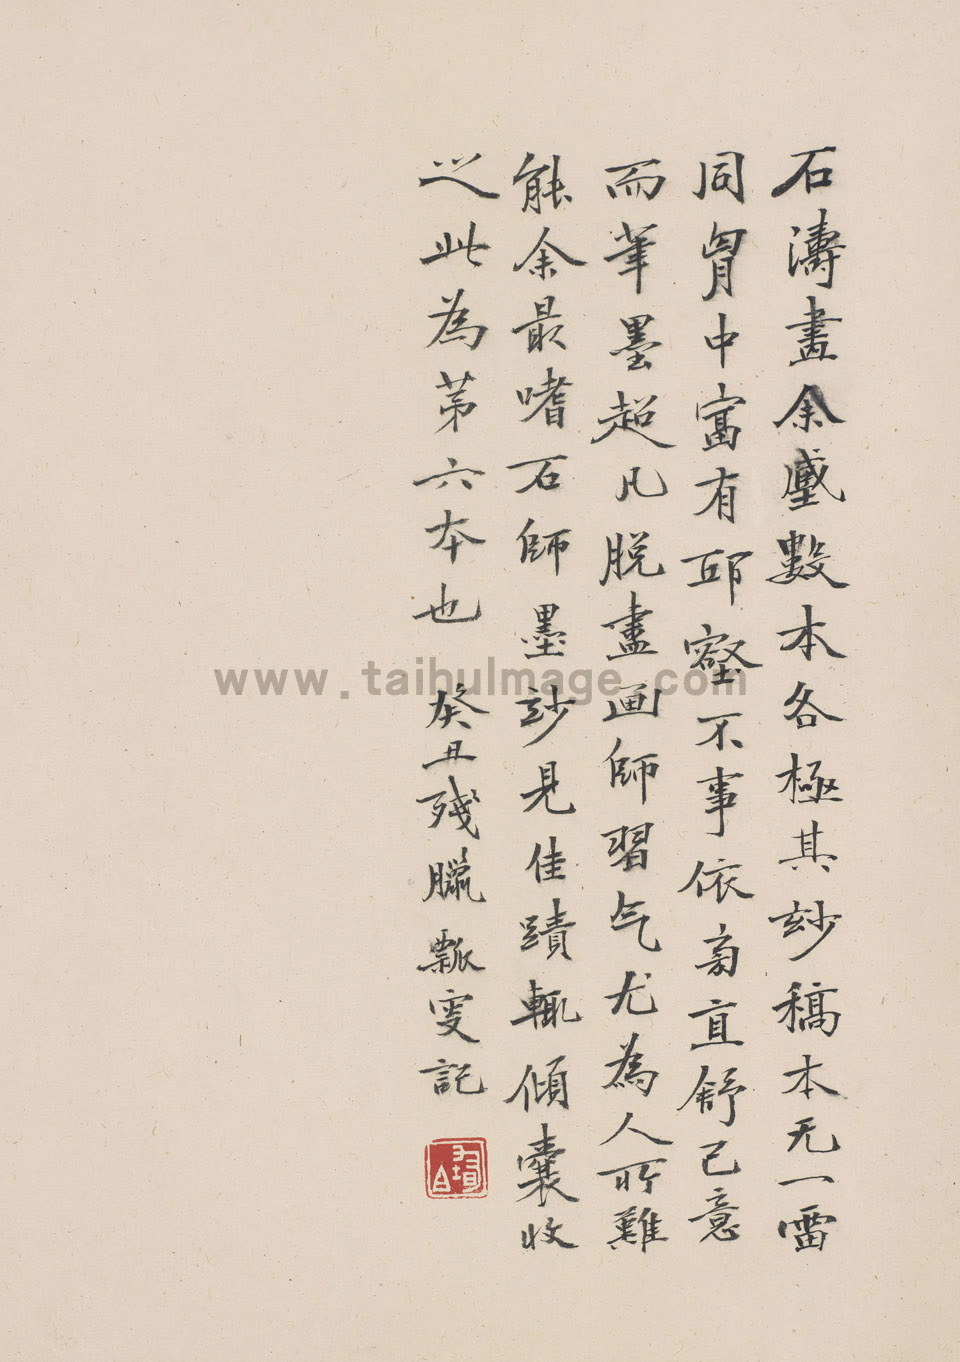 石濤畫余藏數本各極其玅稿本无一雷
同胷中富有邱壑不事依旁直舒己意
而筆墨超凡脱盡画師習气尤為人所難
能余最嗜石師墨玅見佳蹟輒傾囊收
之此為苐六本也 癸丑殘臘瓢叟記
www.taihuImage.com